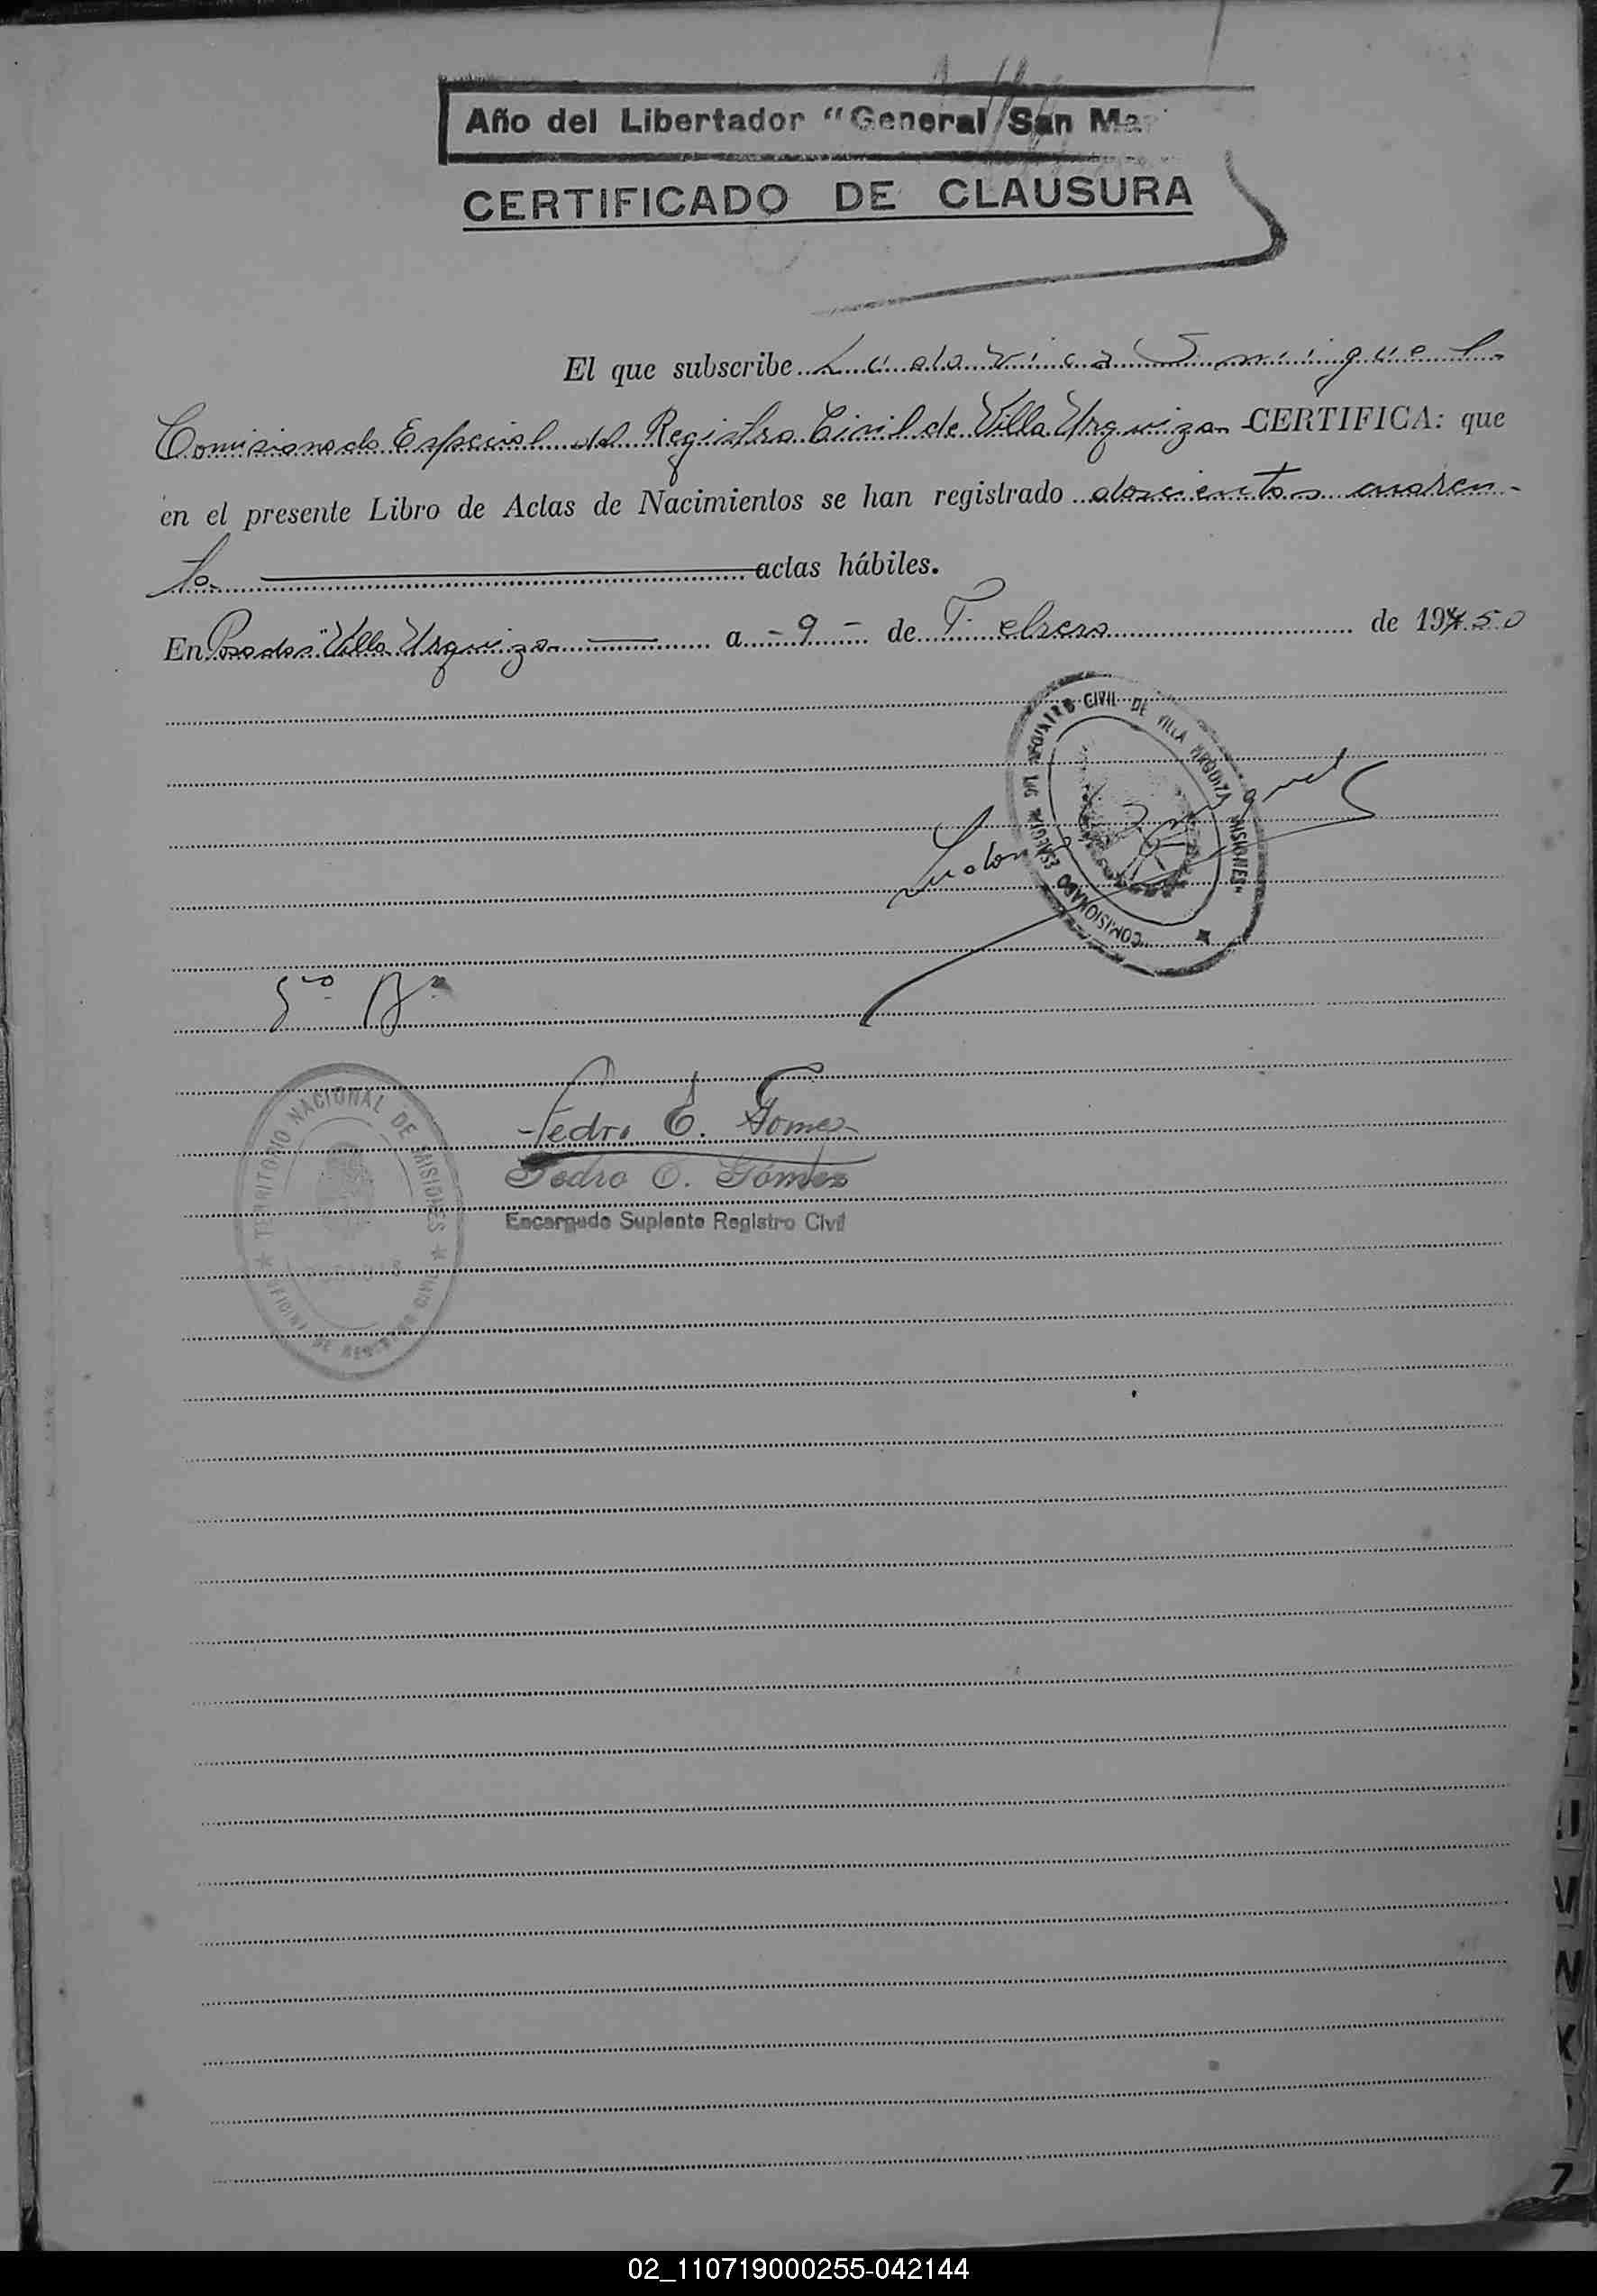 Año del Libertador "General San Mar
CERTIFICADO DE CLAUSURA
El que subscribe Ludovica Smniguel
Comisionado Especial del Registro Civil de Villa Urquiza CERTIFICA: que
en el presente Libro de Actas de Nacimientos se han registrado doscientos cuaren-
ta actas hábiles.
En Posadas "Villa Urquiza a - 9 - de Febrero de 194 50
COMISIONADO ESPECIAL DEL REGISTRO CIVIL DE VILLA URQUIZA MISIONES"
Vo Bo
Pedro E. Gomez
Pedro E. Gómez
Encargado Suplente Registro Civil
TERRITORIO NACIONAL DE MISIONES
OFICINA DE REGISTRO CIVIL
02_110719000255-042144